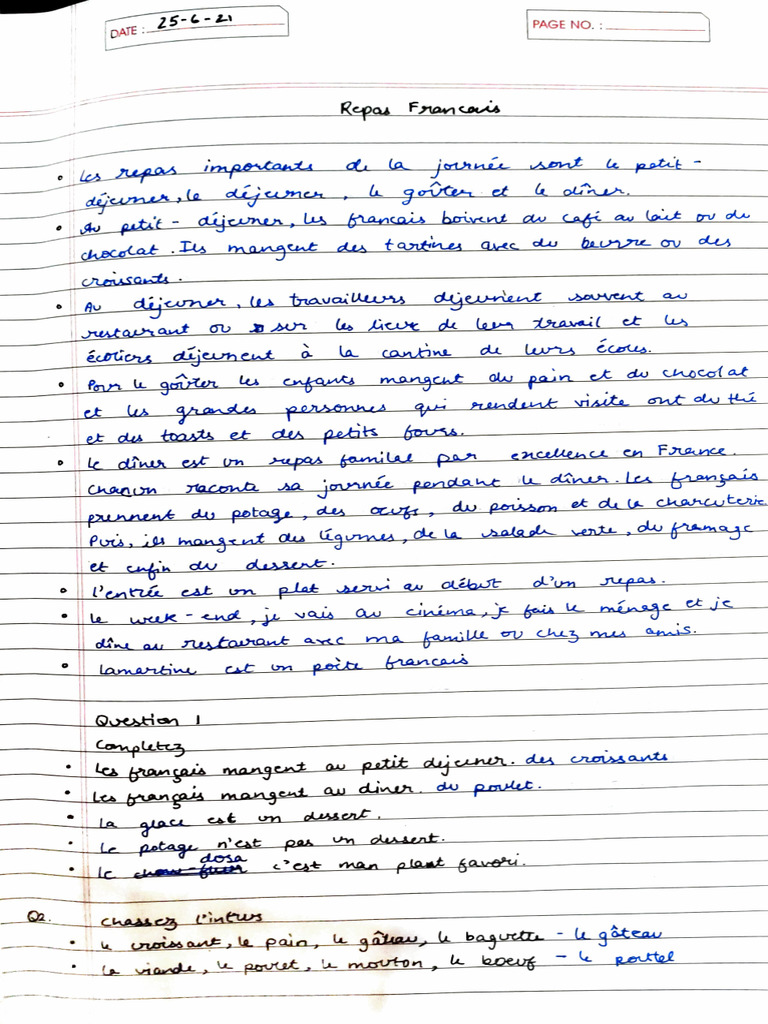 DATE : 25-6-21
PAGE NO. :
Repas Francais
• Les repas importants de la journée sont le petit-
déjeuner, le déjeuner, le goûter et le dîner.
• Au petit-déjeuner, les francais boivent du café au lait ou du
chocolat. Ils mangent des tartines avec du beurre ou des
croissants.
• Au déjeuner, les travailleurs déjeunent souvent au
restaurant ou sur les lieux de leur travail et les
écoliers déjeunent à la cantine de leurs écoles.
• Pour le goûter les enfants mangent du pain et du chocolat
et les grandes personnes qui rendent visite ont du thé
et des toasts et des petits fours.
• Le dîner est un repas familal par excellence en France.
Chacun raconte sa journée pendant le dîner. Les français
prennent du potage, des œufs, du poisson et de la charcuterie
Puis, ils mangent des légumes, de la salade verte, du framage
et enfin du dessert.
• L'entrée est un plat servi au début d'un repas.
• Le week-end, je vais au cinéma, je fais le ménage et je
dîne au restaurant avec ma famille ou chez mes amis.
• Lamartine est un poète francais
Question 1
Completez
• Les français mangent au petit dejeuner. des croissants
• Les français mangent au diner. du poulet.
• La glace est un dessert.
• Le potage n'est pas un dessert.
• Le dosa c'est man plant favori.
Q2. Chassez l'intrus
• Le croissant, le pain, le gâteau, le baguette - le gâteau
• La viande, le poulet, le mouton, le boeuf - le pouttel